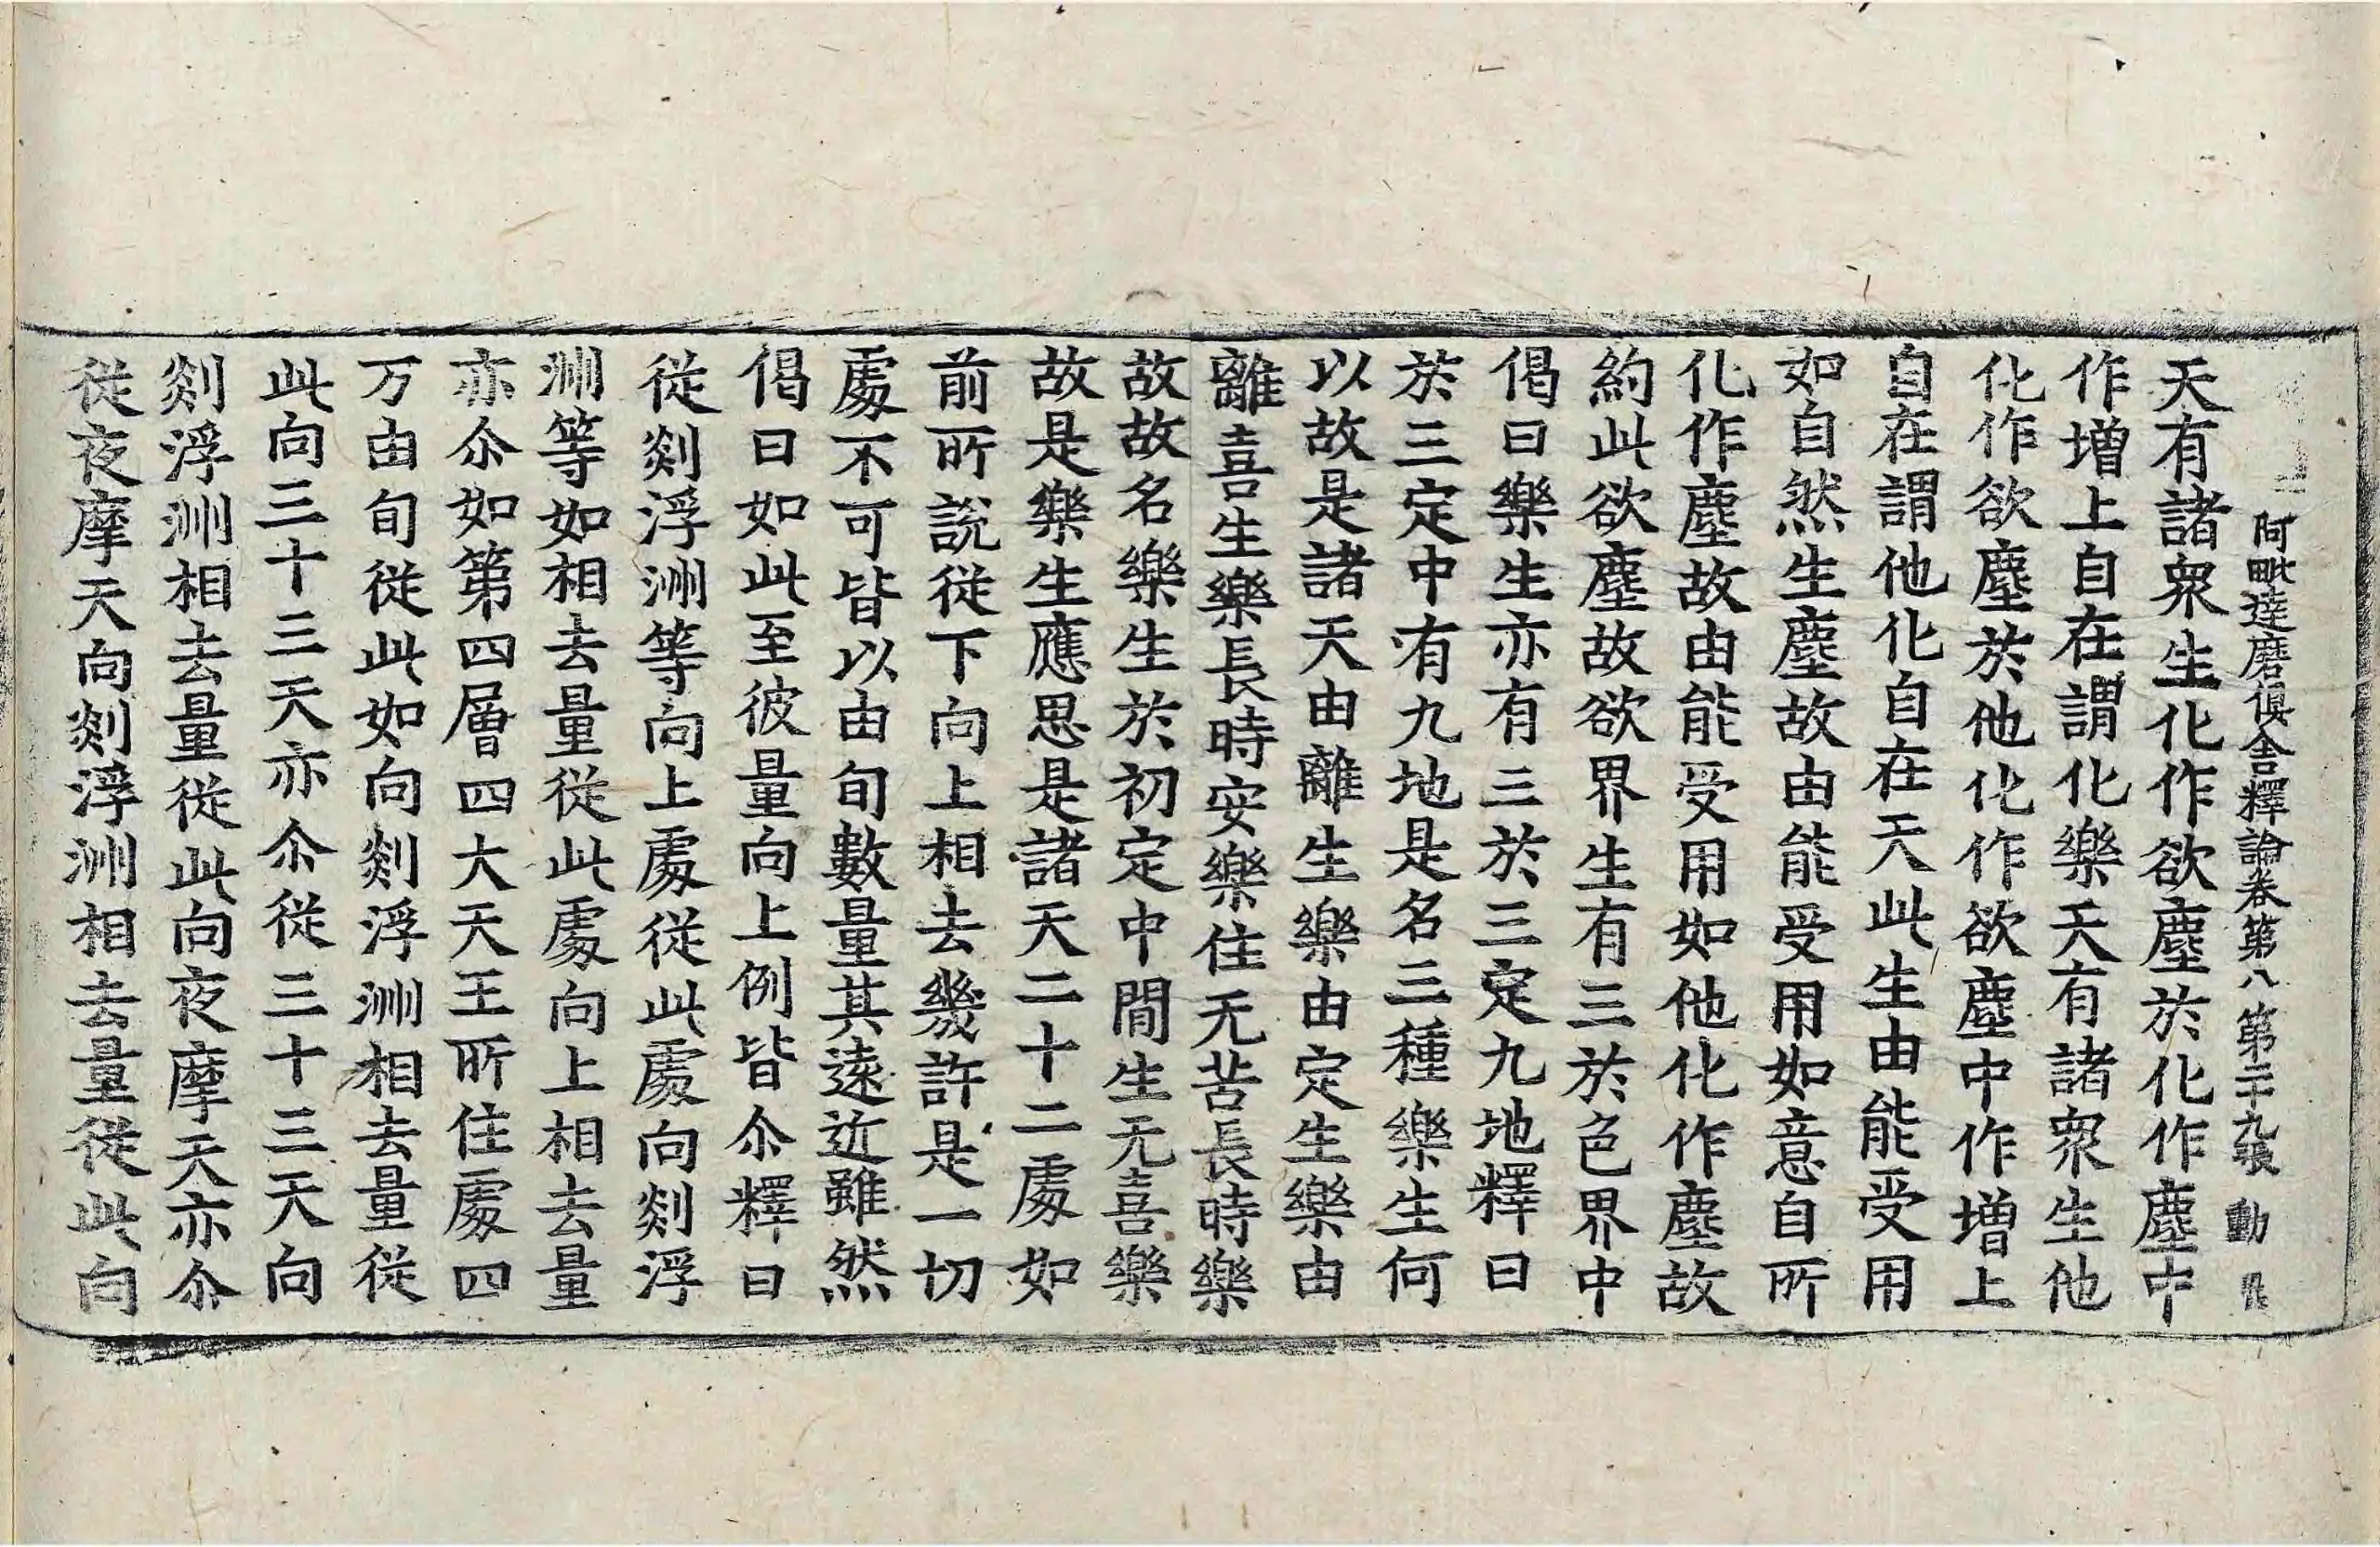 阿毗達磨俱舍釋論卷第八 第二十九張 動
天有諸衆生化作欲塵於化作塵中
作增上自在謂化樂天有諸衆生他
化作欲塵於他化作欲塵中作增上
自在謂他化自在天此生由能受用
如自然生塵故由能受用如意自所
化作塵故由能受用如他化作塵故
約此欲塵故欲界生有三於色界中
偈曰樂生亦有三於三定九地釋曰
於三定中有九地是名三種樂生何
以故是諸天由離生樂由定生樂由
離喜生樂長時安樂住无苦長時樂
故故名樂生於初定中間生无喜樂
故是樂生應思是諸天二十二處如
前所說從下向上相去幾許是一切
處不可皆以由旬數量其遠近雖然
偈曰如此至彼量向上例皆尒釋曰
從剡浮洲等向上處從此處向剡浮
洲等如相去量從此處向上相去量
亦尒如第四層四大天王所住處四
万由旬從此如向剡浮洲相去量從
此向三十三天亦尒從三十三天向
剡浮洲相去量從此向夜摩天亦尒
從夜摩天向剡浮洲相去量從此向